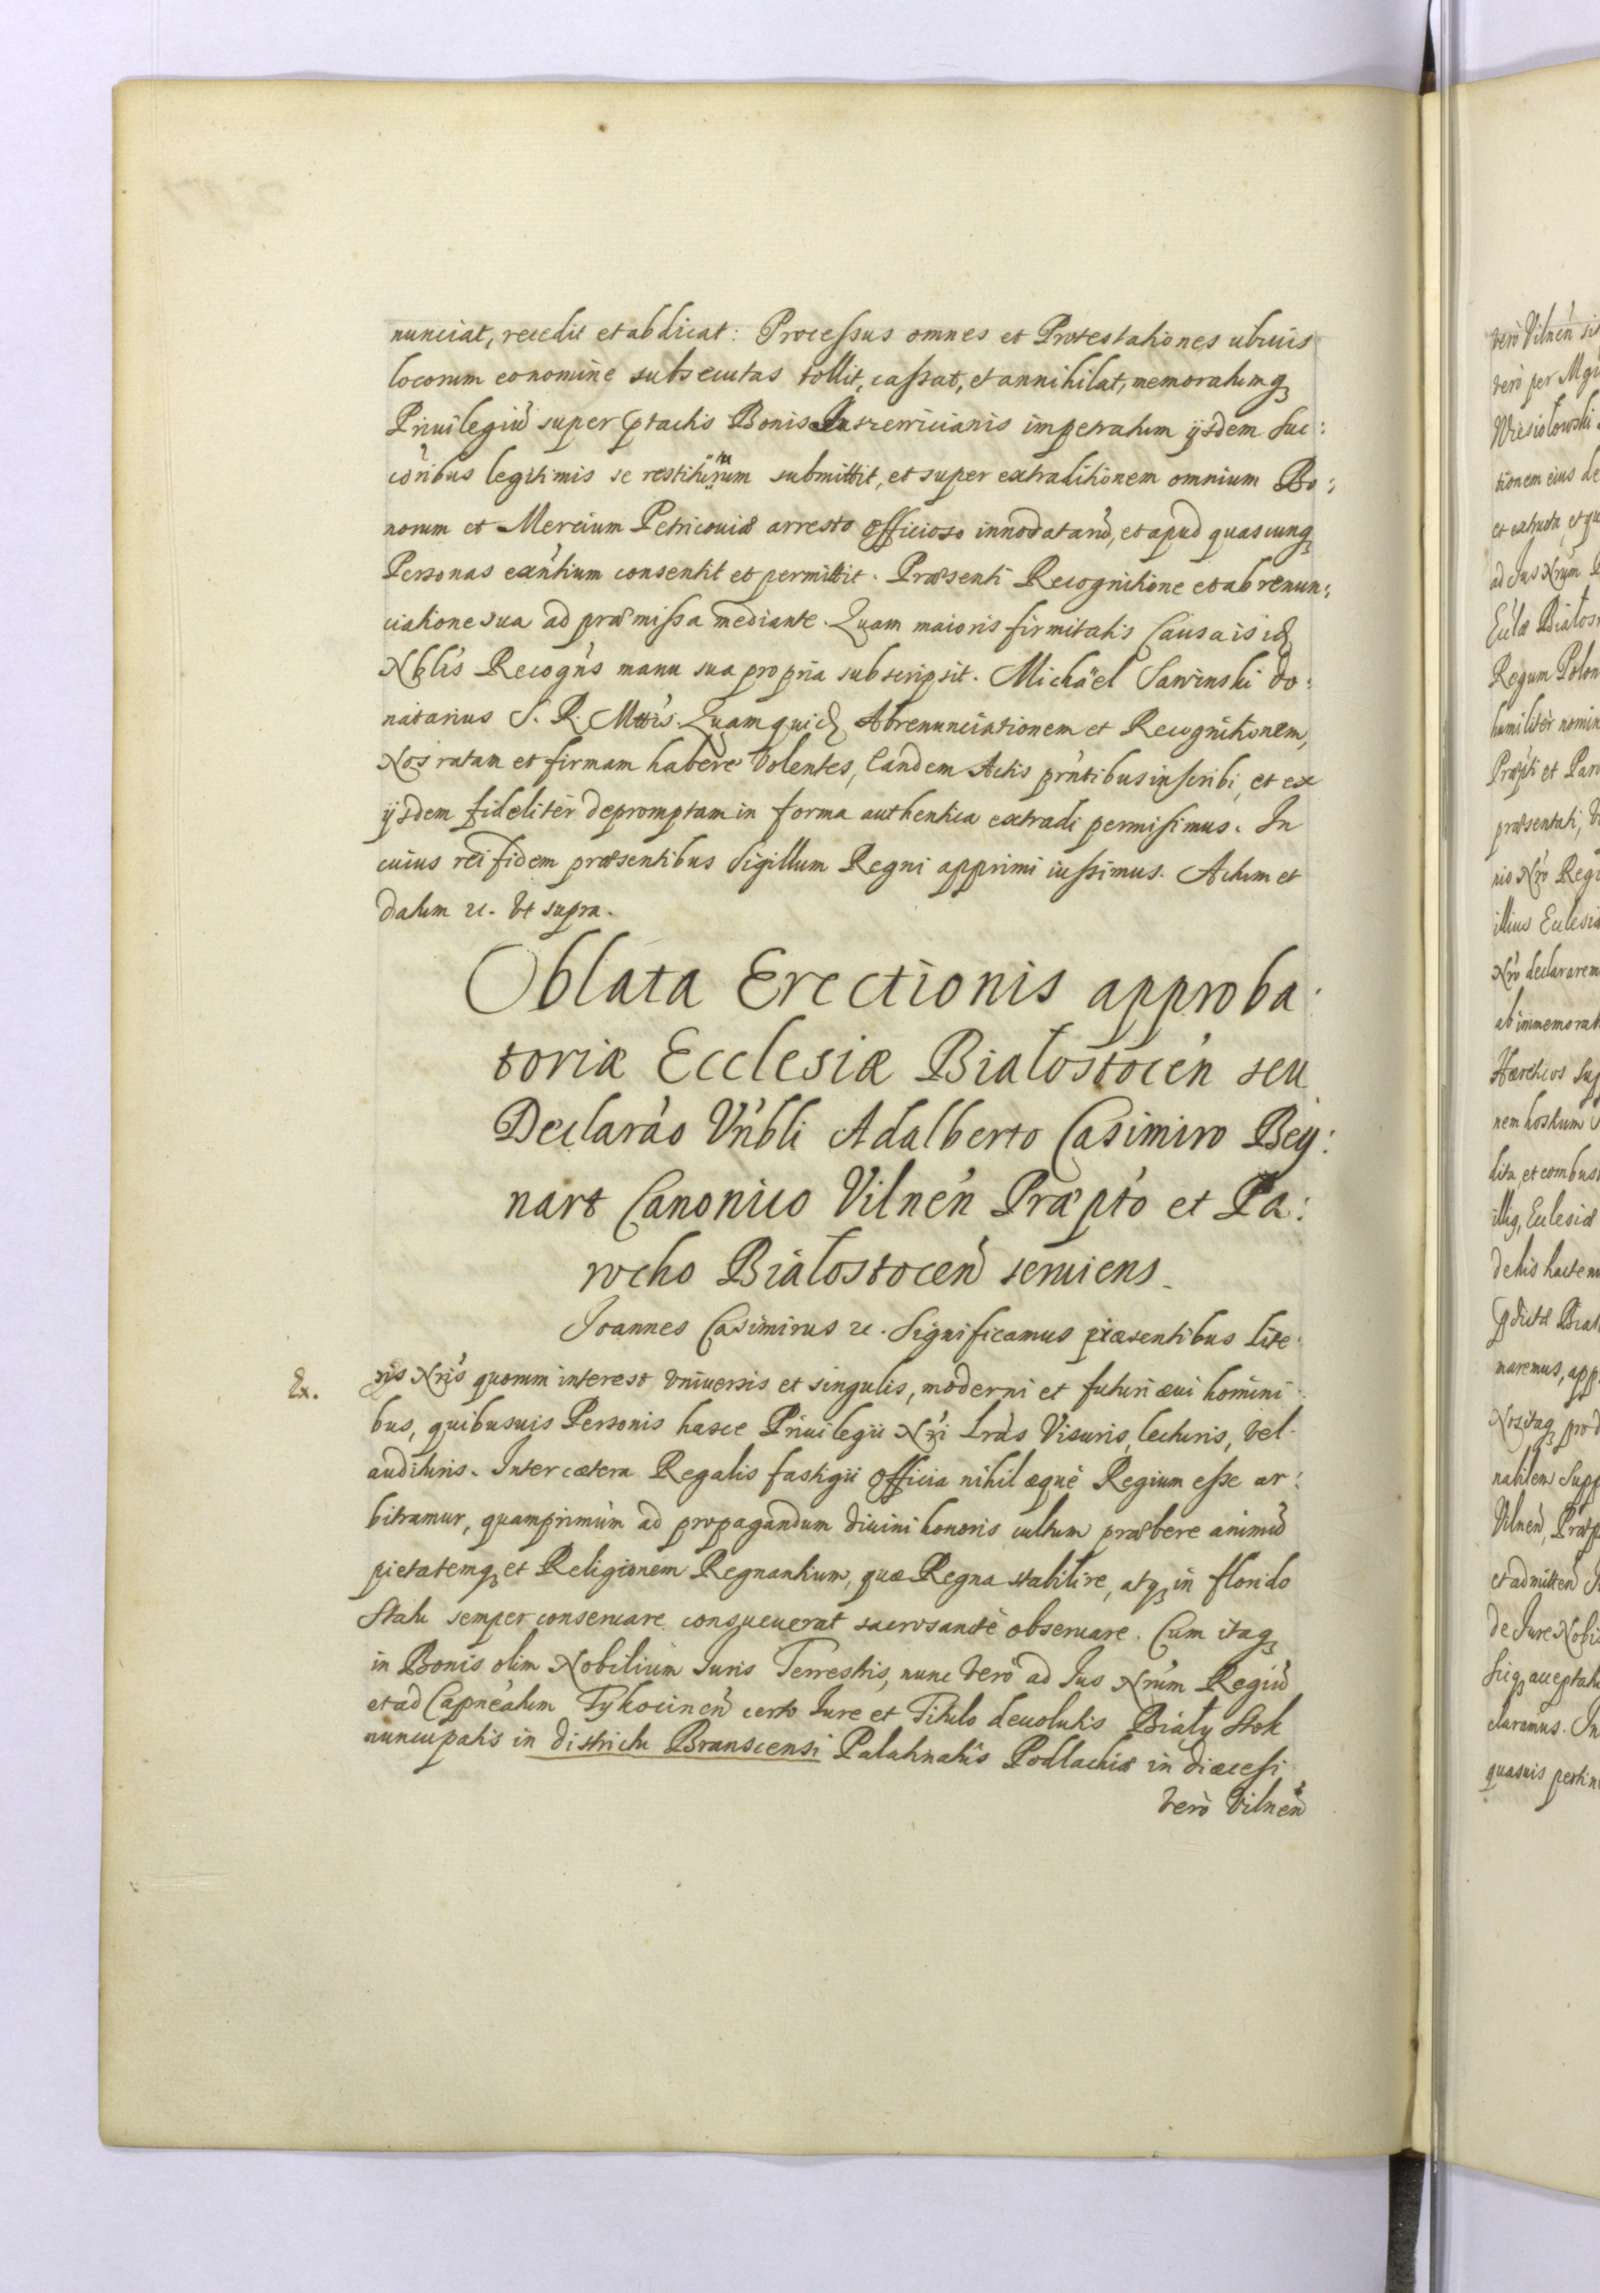 nunciat, recedit et abdicat: Processus omnes et Protestationes ubiuis
locorum eo nomine subsecutas tollit, cassat, et annihilat, memoratumq
Priuilegiū super ptactis Bonis impetratum ijsdem suc:
cōribus legitimis se restiturum submittit, et super extraditionem omnium Bo:
norum et Mercium Petricouiæ arresto officioso innodatarū, et apud quascunq
Personas exn̄tium consentit et permittit. Præsenti Recognitione et abrenun:
ciatione sua ad præmissa mediante. Quam maioris firmitatis Causa is id
Nblis Recogn̄s manu sua propria subscripsit. Michäel Sawinski do:
natarius S. R. Mttis. Quam quid Abrenunciationem et Recognitionem,
Nos ratam et firmam habere Volentes, Eandem Actis prn̄tibus inscribi, et ex
ijsdem fideliter depromptam in forma authentica extradi permisimus. In
cuius rei fidem præsentibus Sigillum Regni apprimi iussimus. Actum et
datum etc. Vt supra.
Oblata Erectionis approba:
toriæ Ecclesiæ Białostocen̄ seu
Declarāo Vn̄bli Adalberto Casimiro Bey:
nart Canonico Vilnen̄ Præpto et Pa:
rocho Białostocen̄ seruiens
Joannes Casimirus etc. Significamus præsentibus Lite:
Ex. ris Nris quorum interest Vniuersis et singulis, moderni et futuri æui homini:
bus, quibusuis Personis hasce Priuilegii Nri Lrās Visuris, lecturis, Vel
audituris. Inter cætera Regalis fastigii officia nihil æquè Regium esse ar:
bitramur, quamprimùm ad propagandum diuini honoris cultum præbere animū
pietatemq et Religionem Regnantium, quæ Regna stabilire, atq in florido
Statu semper conseruare consueuerat sacrosanctè obseruare. Cum itaq
in Bonis olim Nobilium Juris Terrestris, nunc Verò ad Jus Nrum Regiū
et ad Capneatum Tykocinen̄ certo Jure et Titulo deuolutis Biały Stok
nuncupatis in districtu Branscensi Palatinatus Podlachiæ in diæcesi
Verò Vilnen̄